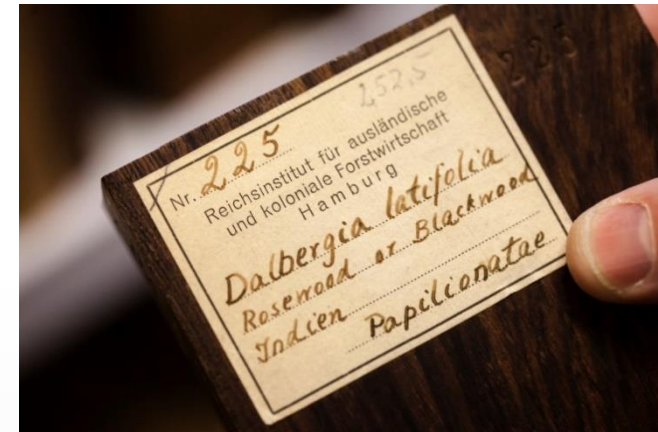 252,5
225
Nr. 225
Reichsinstitut für ausländische
und koloniale Forstwirtschaft
Hamburg
Dalbergia latifolia
Rosewood or Blackwood
Indien
Papilionatae